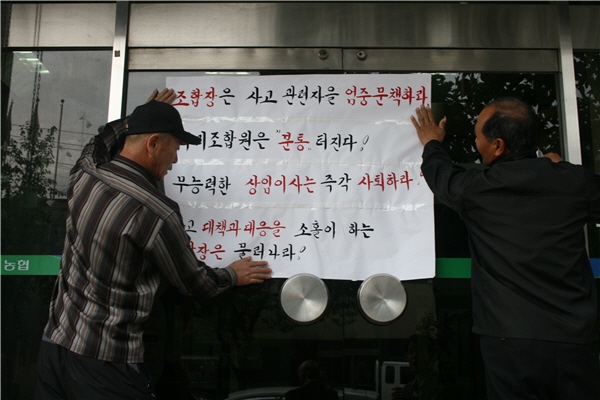 조합장은 사고 관련자을 엄중문책하라
조합원은 "분통" 터진다!
무능력한 상임이사는 즉각 사퇴하라!
대책과 대응을 소홀이 하는
은 물러나라!
농협